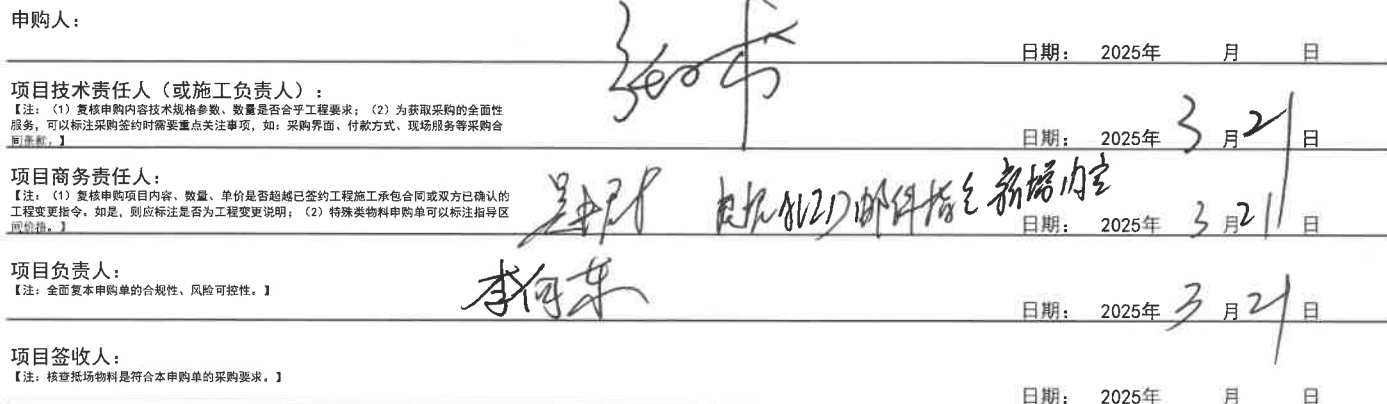 申购人：
日期： 2025年 月 日
项目技术责任人（或施工负责人）：
【注：（1）复核申购内容技术规格参数、数量是否合乎工程要求；（2）为获取采购的全面性
服务，可以标注采购签约时需要重点关注事项，如：采购界面、付款方式、现场服务等采购合
同条款。】
日期： 2025年 3 月 21 日
项目商务责任人：
【注：（1）复核申购项目内容、数量、单价是否超越已签约工程施工承包合同或双方已确认的
工程变更指令。如是，则应标注是否为工程变更说明；（2）特殊类物料申购单可以标注指导区
间价格。】
邮件指令 新增内容
日期： 2025年 3 月 21 日
项目负责人：
【注：全面复本申购单的合规性、风险可控性。】
李何东
日期： 2025年 3 月 21 日
项目签收人：
【注：核查抵场物料是符合本申购单的采购要求。】
日期： 2025年 月 日